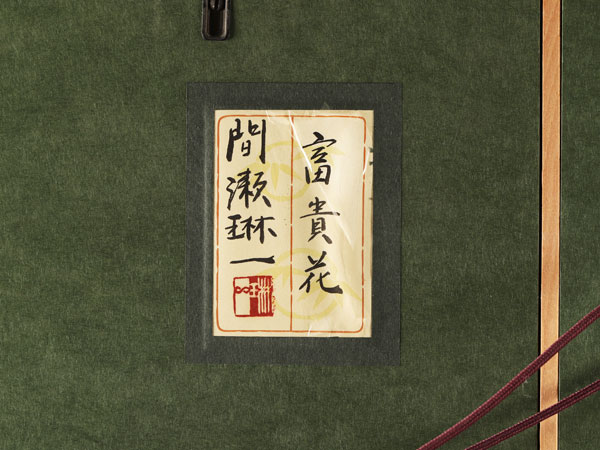 富貴花
間瀬琳一